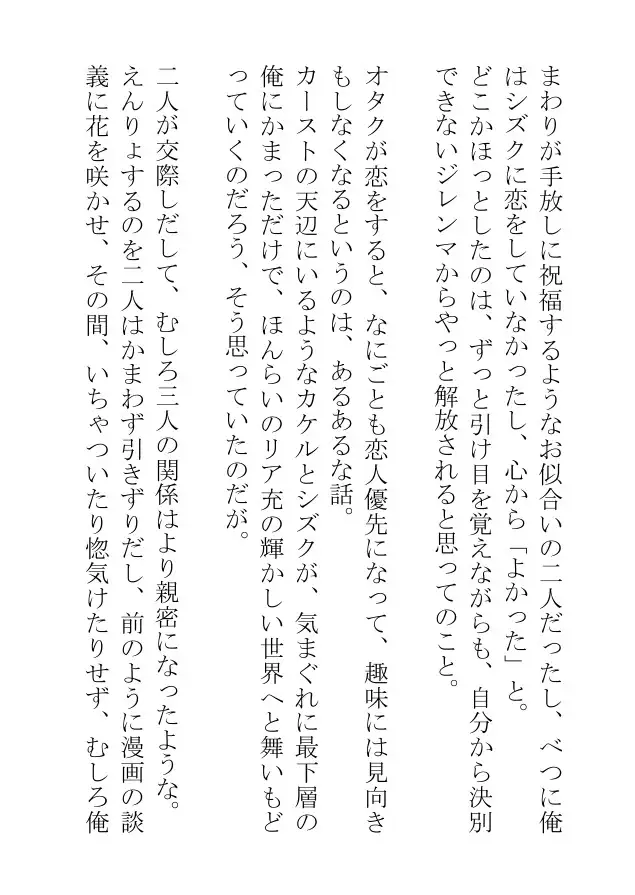 まわりが手放しに祝福するようなお似合いの二人だったし、べつに俺
はシズクに恋をしていなかったし、心から「よかった」と。
どこかほっとしたのは、ずっと引け目を覚えながらも、自分から決別
できないジレンマからやっと解放されると思ってのこと。
オタクが恋をすると、なにごとも恋人優先になって、趣味には見向き
もしなくなるというのは、あるあるな話。
カーストの天辺にいるようなカケルとシズクが、気まぐれに最下層の
俺にかまっただけで、ほんらいのリア充の輝かしい世界へと舞いもど
っていくのだろう、そう思っていたのだが。
二人が交際しだして、むしろ三人の関係はより親密になったような。
えんりょするのを二人はかまわず引きずりだし、前のように漫画の談
義に花を咲かせ、その間、いちゃついたり惚気けたりせず、むしろ俺